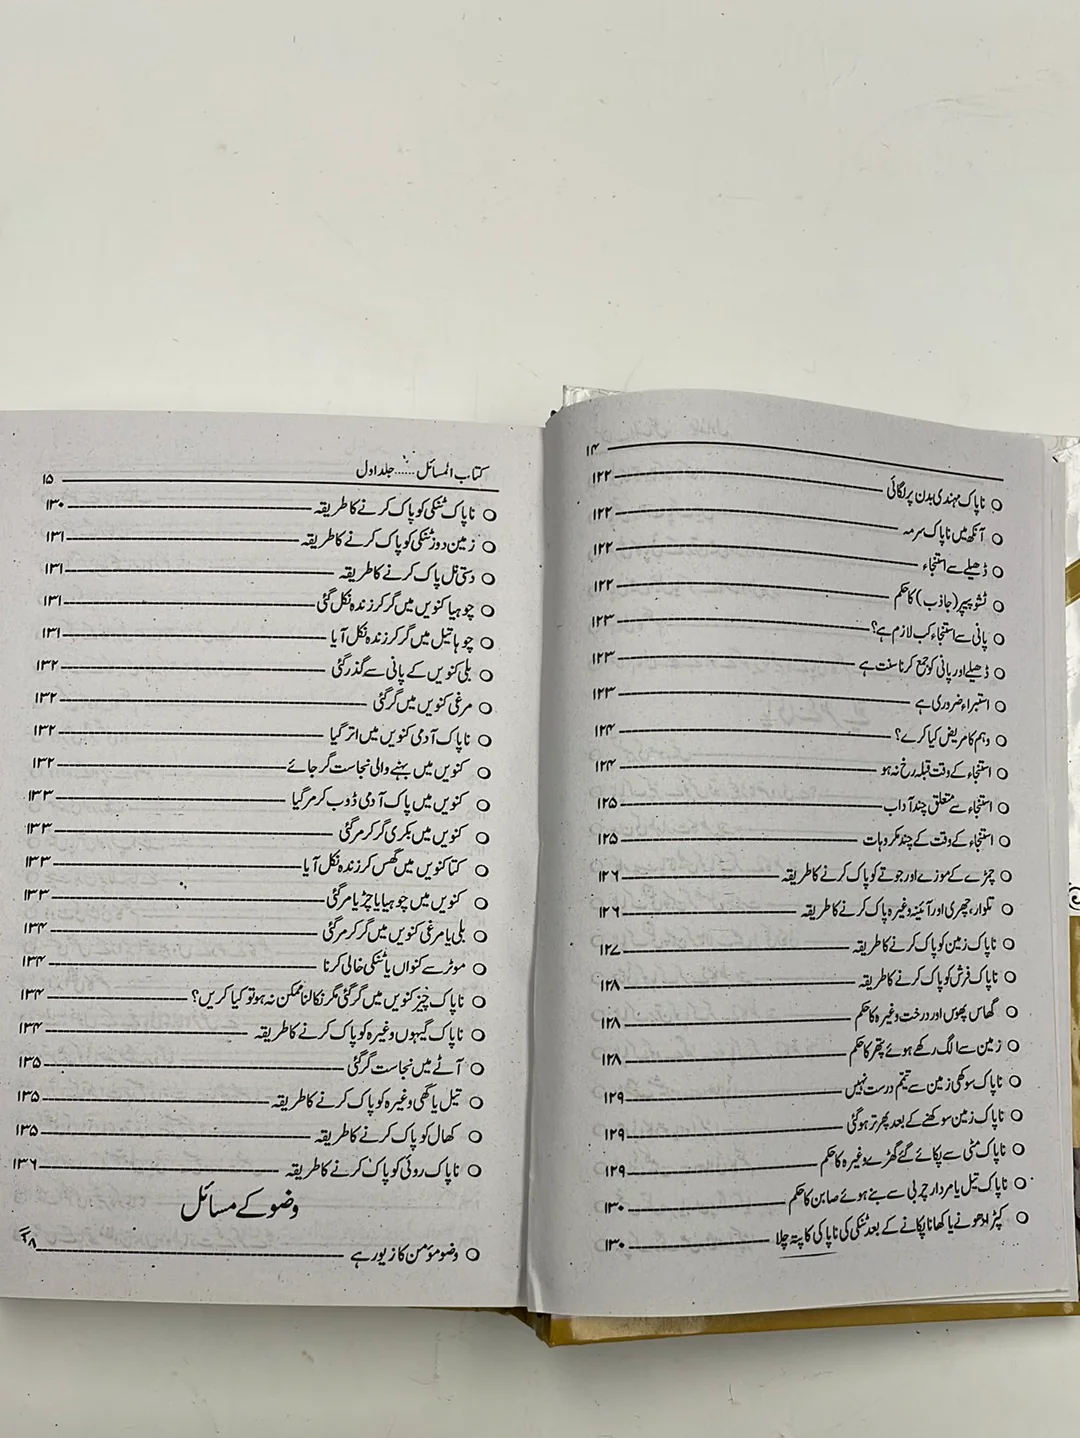 ۱۴
ناپاک مہندی بدن پر لگائی ۱۲۲
آنکھ میں ناپاک سرمہ ۱۲۲
ڈھیلے سے استنجاء ۱۲۲
ٹشو پیپر (جاذب) کا حکم ۱۲۲
پانی سے استنجاء کب لازم ہے؟ ۱۲۳
ڈھیلے اور پانی کو جمع کرنا سنت ہے ۱۲۳
استبراء ضروری ہے ۱۲۳
وہم کا مریض کیا کرے؟ ۱۲۴
استنجاء کے وقت قبلہ رخ نہ ہو ۱۲۴
استنجاء سے متعلق چند آداب ۱۲۵
استنجاء کے وقت کے چند مکروہات ۱۲۵
چمڑے کے موزے اور جوتے کو پاک کرنے کا طریقہ ۱۲۶
تلوار، چھری اور آئینہ وغیرہ پاک کرنے کا طریقہ ۱۲۶
ناپاک زمین کو پاک کرنے کا طریقہ ۱۲۷
ناپاک فرش کو پاک کرنے کا طریقہ ۱۲۸
گھاس پھوس اور درخت وغیرہ کا حکم ۱۲۸
زمین سے الگ رکھے ہوئے پتھر کا حکم ۱۲۸
ناپاک سوکھی زمین سے تیمم درست نہیں ۱۲۹
ناپاک زمین سوکھنے کے بعد پھر تر ہوگئی ۱۲۹
ناپاک مٹی سے پکائے گئے گھڑے وغیرہ کا حکم ۱۲۹
ناپاک تیل یا مردار چربی سے بنے ہوئے صابن کا حکم ۱۳۰
کپڑا دھونے یا کھانا پکانے کے بعد ٹنکی کی ناپاکی کا پتہ چلا ۱۳۰
کتاب المسائل ...... جلد اول ۱۵
ناپاک ٹنکی کو پاک کرنے کا طریقہ ۱۳۰
زمین دوز ٹنکی کو پاک کرنے کا طریقہ ۱۳۱
دستی نل پاک کرنے کا طریقہ ۱۳۱
چوہیا کنویں میں گر کر زندہ نکل گئی ۱۳۱
چوہا تیل میں گر کر زندہ نکل آیا ۱۳۱
بلی کنویں کے پانی سے گذر گئی ۱۳۲
مرغی کنویں میں گر گئی ۱۳۲
ناپاک آدمی کنویں میں اتر گیا ۱۳۲
کنویں میں بہنے والی نجاست گر جائے ۱۳۲
کنویں میں پاک آدمی ڈوب کر مر گیا ۱۳۳
کنویں میں بکری گر کر مر گئی ۱۳۳
کتا کنویں میں گھس کر زندہ نکل آیا ۱۳۳
کنویں میں چوہیا یا چڑیا مر گئی ۱۳۳
بلی یا مرغی کنویں میں گر کر مر گئی ۱۳۴
موٹر سے کنواں یا ٹنکی خالی کرنا ۱۳۴
ناپاک چیز کنویں میں گر گئی مگر نکالنا ممکن نہ ہو تو کیا کریں؟ ۱۳۴
ناپاک گیہوں وغیرہ کو پاک کرنے کا طریقہ ۱۳۴
آٹے میں نجاست گر گئی ۱۳۵
تیل یا گھی وغیرہ کو پاک کرنے کا طریقہ ۱۳۵
کھال کو پاک کرنے کا طریقہ ۱۳۵
ناپاک روئی کو پاک کرنے کا طریقہ ۱۳۶
وضو کے مسائل
وضو مؤمن کا زیور ہے